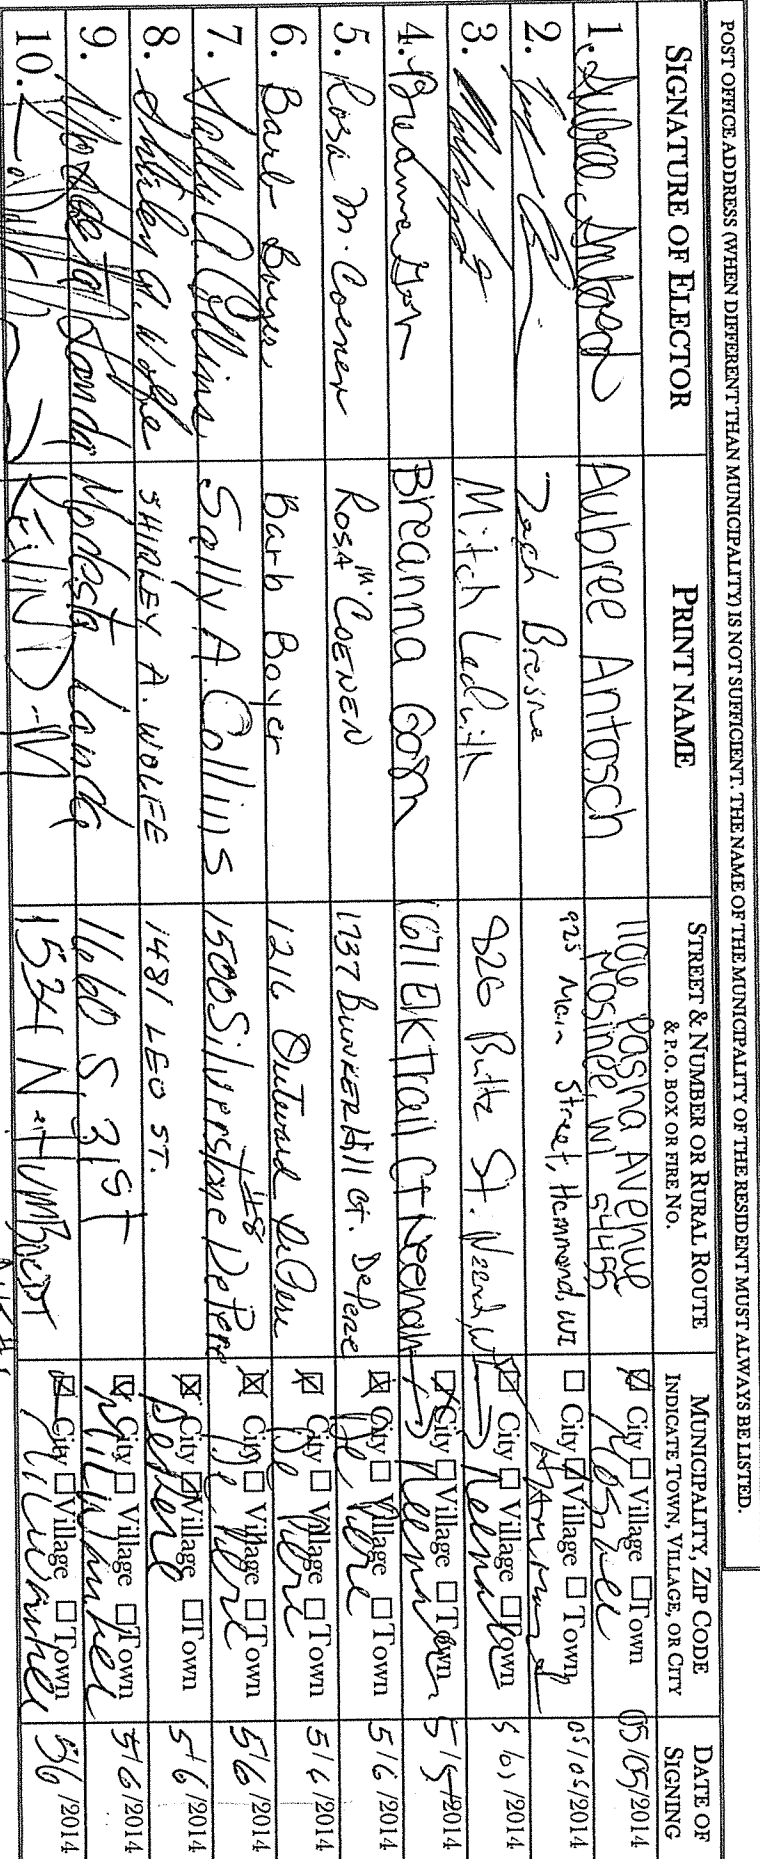 POST OFFICE ADDRESS (WHEN DIFFERENT THAN MUNICIPALITY) IS NOT SUFFICIENT. THE NAME OF THE MUNICIPALITY OF THE RESIDENT MUST ALWAYS BE LISTED.
SIGNATURE OF ELECTOR PRINT NAME STREET & NUMBER OR RURAL ROUTE & P.O. BOX OR FIRE NO. MUNICIPALITY, ZIP CODE INDICATE TOWN, VILLAGE, OR CITY DATE OF SIGNING
1. Aubree Antosch Aubree Antosch Pasha Avenue
Mosinee, WI 54455 City Village Town Mosinee 05/05/2014
2. Zach 925 Main Street, Hammond, WI City Village Town Hammond 05/05/2014
3. Mitch 826 St. City Village Town Neenah 5/ /2014
4. Breanna Breanna 1671 Elk Trail Ct Neenah City Village Town Neenah 5/5/2014
5. Rosa M. Coenen ROSA M. COENEN 1737 BUNKER Hill Ct. DePere City Village Town De Pere 5/6/2014
6. Barb Boyer Barb Boyer 1216 Outward DePere City Village Town De Pere 5/6/2014
7. Sally A Collins Sally A. Collins 1500 Silverstone #8 DePere City Village Town De Pere 5/6/2014
8. Shirley A. Wolfe SHIRLEY A. WOLFE 1481 LEO ST. City Village Town DePere 5/6/2014
9. Modesta Landa Modesta Landa 1660 S. 31st City Village Town Milwaukee 5/6/2014
10. City Village Town Milwaukee 5/6/2014